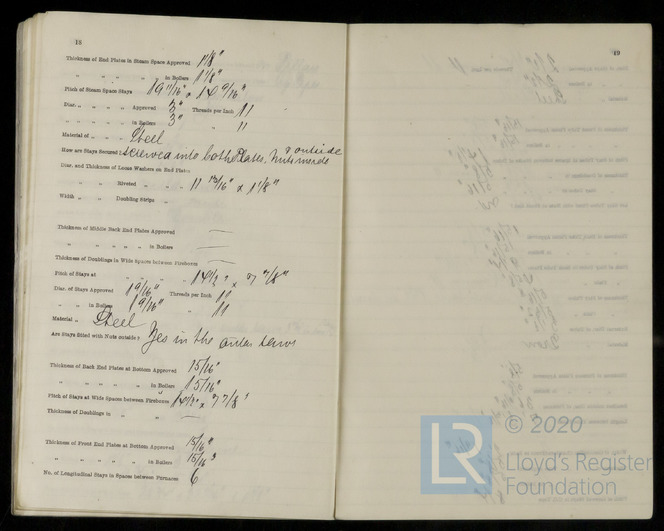 18
Thickness of End Plates in Steam Space Approved 1 1/8"
" " " " in Boilers 1 1/8"
Pitch of Steam Space Stays 19 11/16" x 14 9/16"
Diar. " " " " Approved 3" Threads per Inch 11
" " " " in Boilers 3" " 11
Material of " " Steel
How are Stays Secured? Screwed into both Plates. Nuts inside & outside
Diar. and Thickness of Loose Washers on End Plates
" " Riveted " " 11 13/16" x 1 1/8"
Width " " Doubling Strips "
Thickness of Middle Back End Plates Approved —
" " " " in Boilers —
Thickness of Doublings in Wide Spaces between Fireboxes —
Pitch of Stays at " " " " 14 1/2" x 7 7/8"
Diar. of Stays Approved 1 9/16" Threads per Inch 11
" " in Boilers 1 9/16" " 11
Material " Steel
Are Stays fitted with Nuts outside? Yes in the outer rows
Thickness of Back End Plates at Bottom Approved 15/16"
" " " " in Boilers 15/16"
Pitch of Stays at Wide Spaces between Fireboxes 14 1/2" x 7 7/8"
Thickness of Doublings in " —
Thickness of Front End Plates at Bottom Approved 15/16"
" " " " in Boilers 15/16"
No. of Longitudinal Stays in Spaces between Furnaces 6
19
LR
© 2020
Lloyd's Register
Foundation